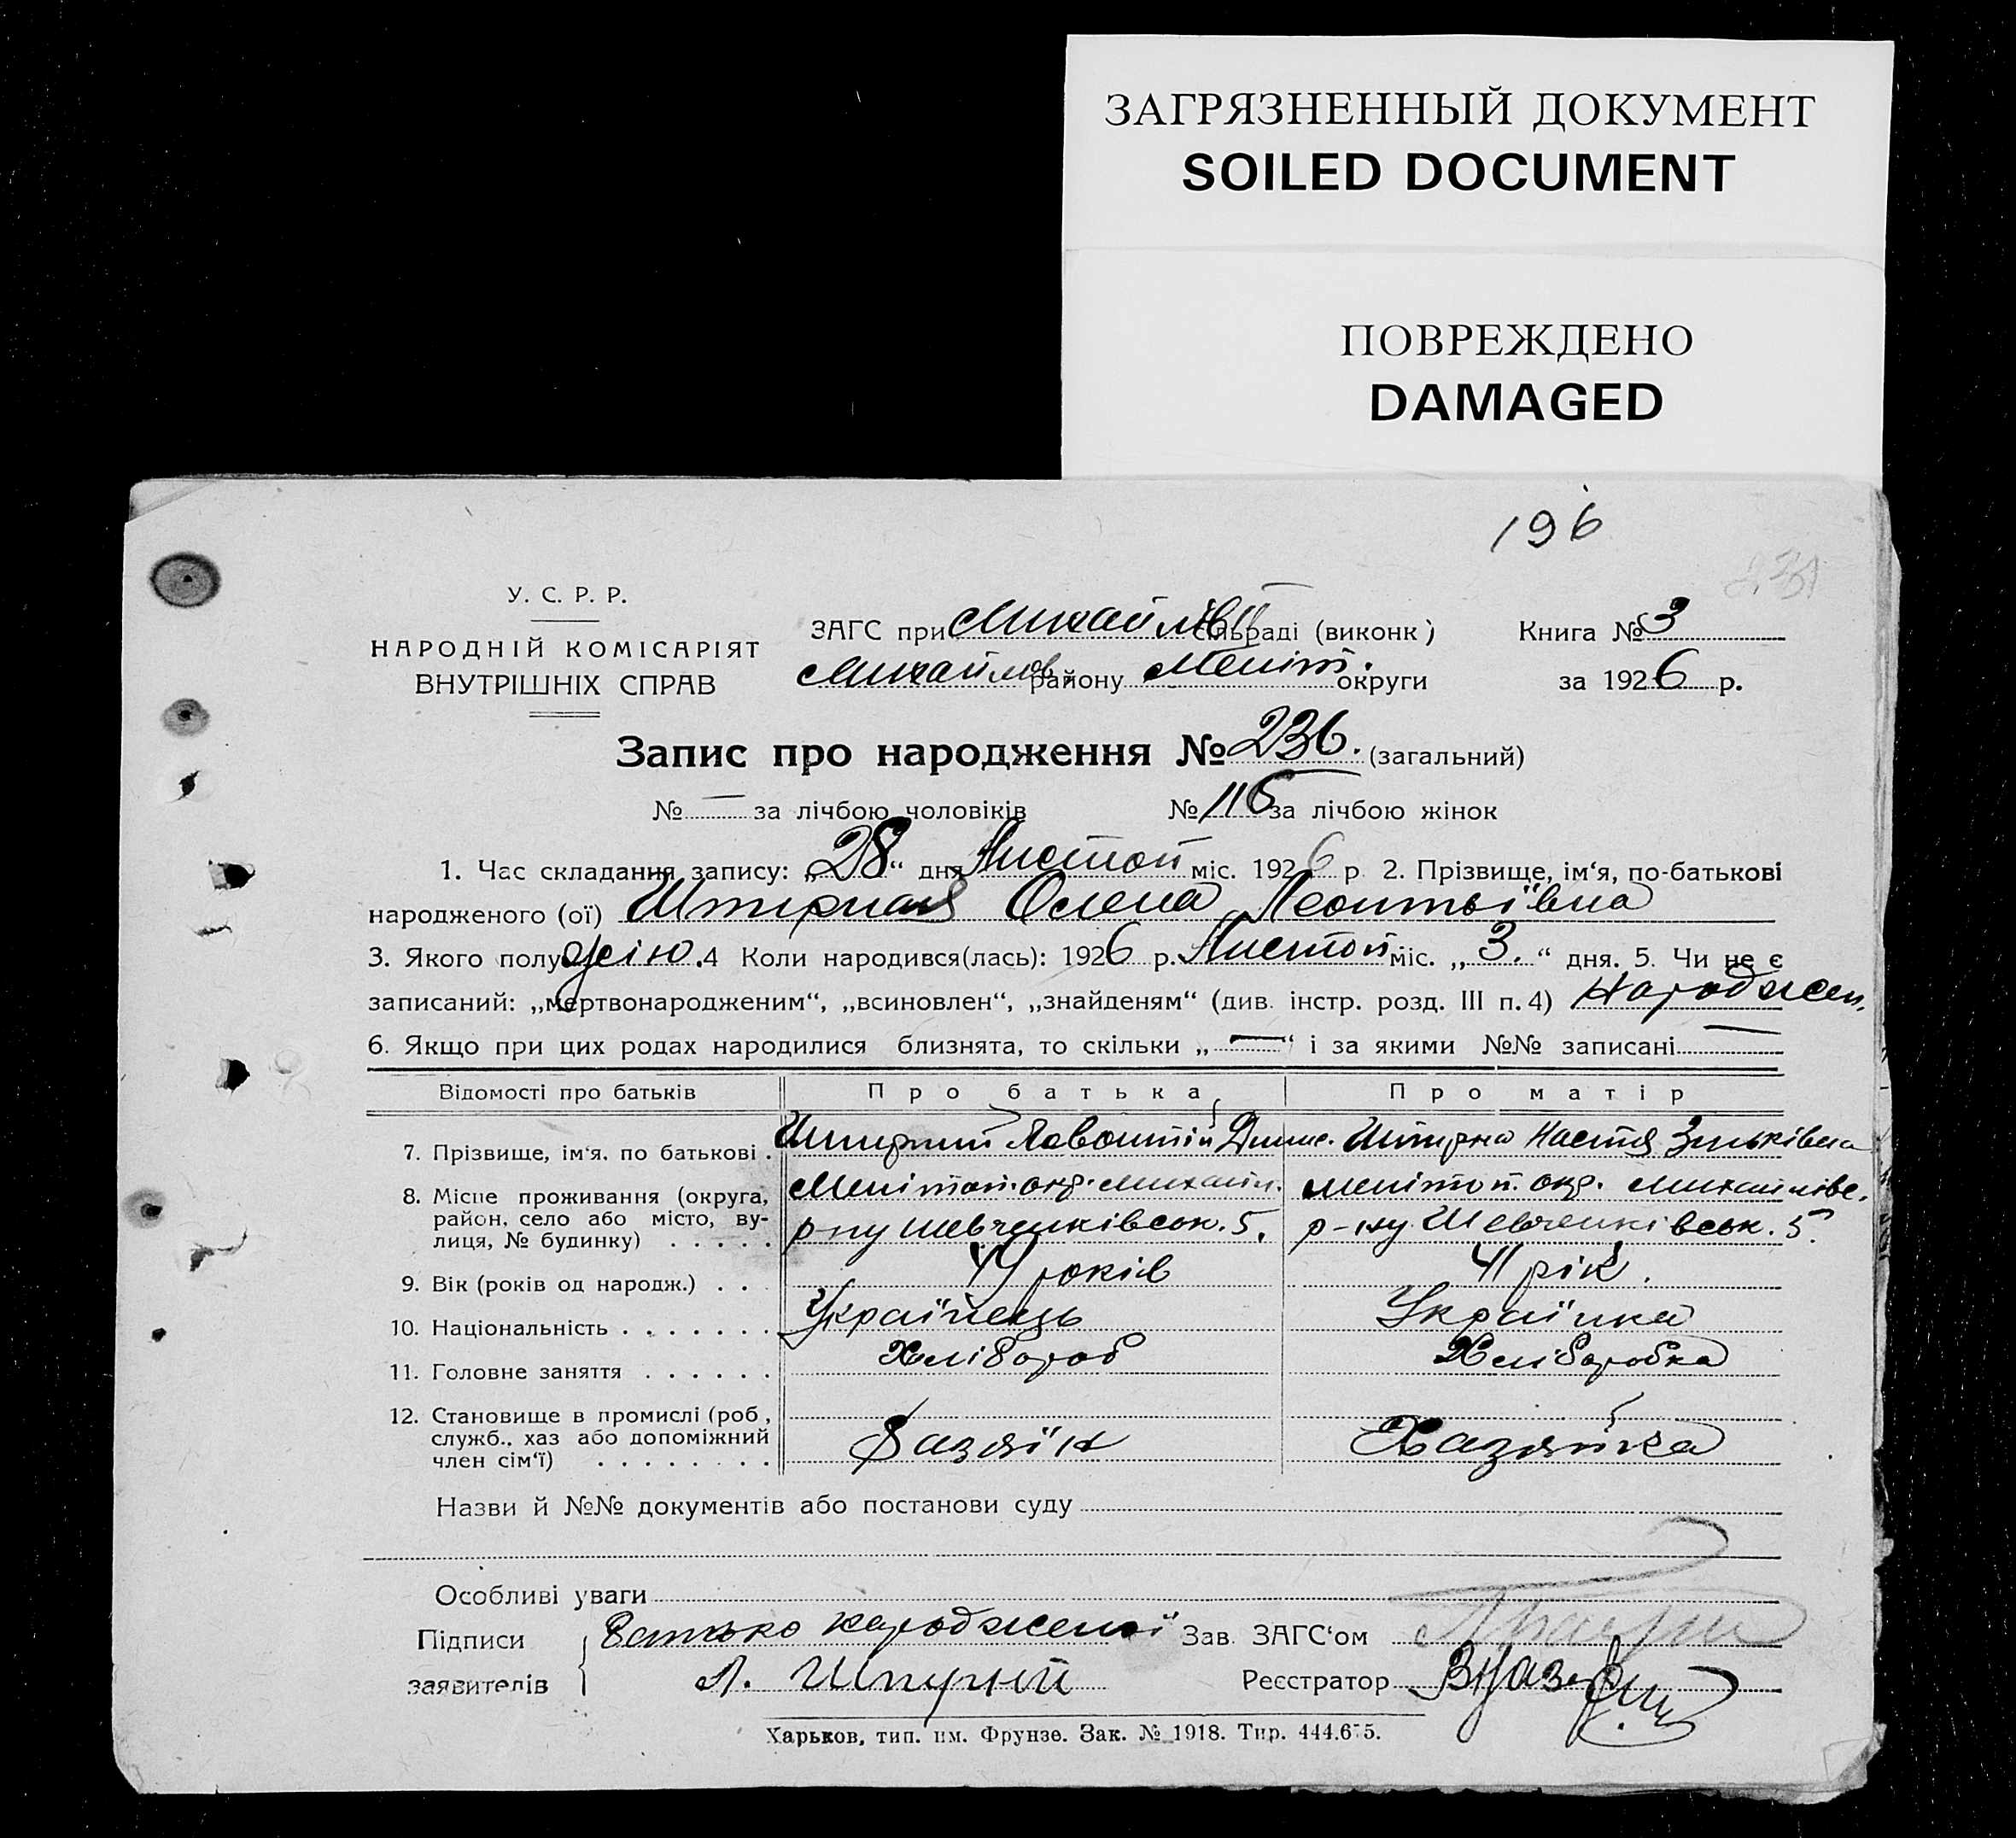 ЗАГРЯЗНЕННЫЙ ДОКУМЕНТ
SOILED DOCUMENT
ПОВРЕЖДЕНО
DAMAGED
196
У. С. Р. Р.
НАРОДНІЙ КОМІСАРІЯТ
ВНУТРІШНІХ СПРАВ
ЗАГС при Михайлів сільраді (виконк) Книга № 3
Михайлов. району Меліт. округи за 1926 р.
Запис про народження № 236. (загальний)
№ — за лічбою чоловіків № 116 за лічбою жінок
1. Час складання запису: „28“ дня Листоп міс. 1926 р 2. Прізвище, ім‘я, по-батькові
народженого (ої) Штирная Олена Леонтьївна
3. Якого полу жін. 4 Коли народився(лась): 1926 р. Листоп міс. „3.“ дня. 5. Чи не є
записаний: „мертвонародженим“, „всиновлен“, „знайденям“ (див. інстр. розд. III п. 4) Народжен.
6. Якщо при цих родах народилися близнята, то скільки „—“ і за якими №№ записані —
Відомості про батьків Про батька Про матір
7. Прізвище, ім‘я, по батькові . Штирний Левонтій Штирна Настя Зіньківна
8. Місце проживання (округа, Мелітоп. окр. Михайл. Мелітоп. окр. Михайлівс.
район, село або місто, ву-
лиця, № будинку) . . . . . р-ну Шевченківськ. 5. р-ну Шевченківськ. 5.
9. Вік (років од народж.) . . . 44 років 41 рік.
10. Національність . . . . . . . Українець Українка
11. Головне заняття . . . . . . Хлібороб Хліборобка
12. Становище в промислі (роб,
служб., хаз або допоміжний Хазяїн Хазяйка
член сім‘ї) . . . . . . . .
Назви й №№ документів або постанови суду
Особливі уваги
Підписи Батько народженої Зав. ЗАГС‘ом
заявителів Л. Штирний Реєстратор
Харьков, тип. им. Фрунзе. Зак. № 1918. Тир. 444.675.